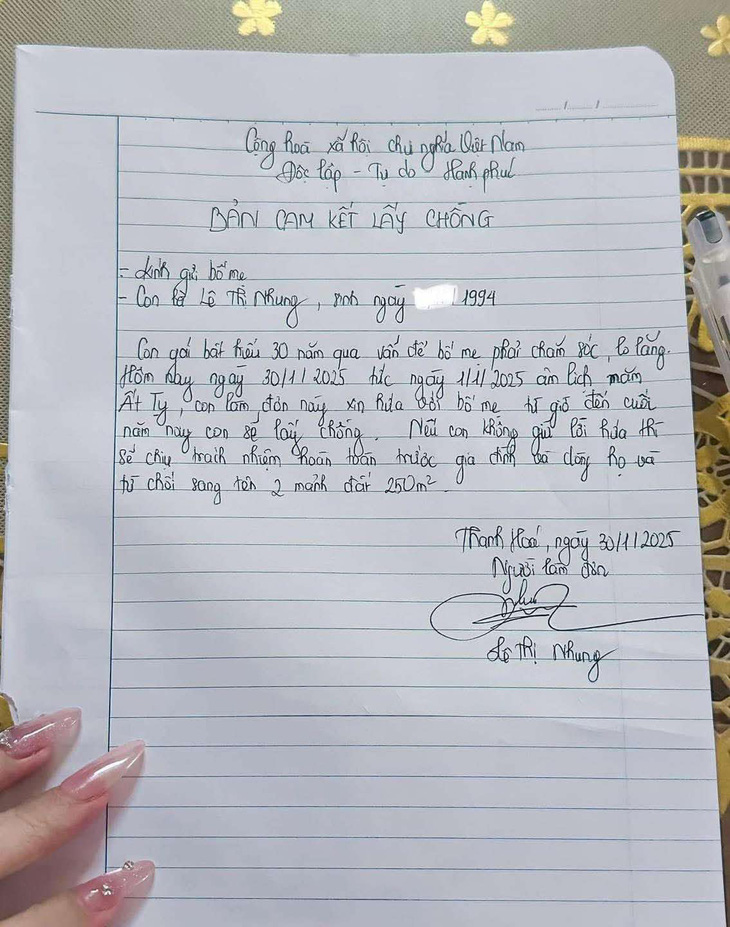 Cộng hoà xã hội chủ nghĩa Việt Nam
Độc lập - Tự do Hạnh phúc
BẢN CAM KẾT LẤY CHỒNG
- Kính gửi bố mẹ
- Con là Lê Thị Nhung, sinh ngày 1994
Con gái bất hiếu 30 năm qua vẫn để bố mẹ phải chăm sóc, lo lắng.
Hôm nay ngày 30/1/2025 tức ngày 1/1/2025 âm lịch năm
Ất Tỵ, con làm đơn này xin hứa với bố mẹ từ giờ đến cuối
năm nay con sẽ lấy chồng. Nếu con không giữ lời hứa thì
sẽ chịu trách nhiệm hoàn toàn trước gia đình và dòng họ và
từ chối sang tên 2 mảnh đất 250m².
Thanh Hoá, ngày 30/1/2025
Người làm đơn
Nhung
Lê Thị Nhung